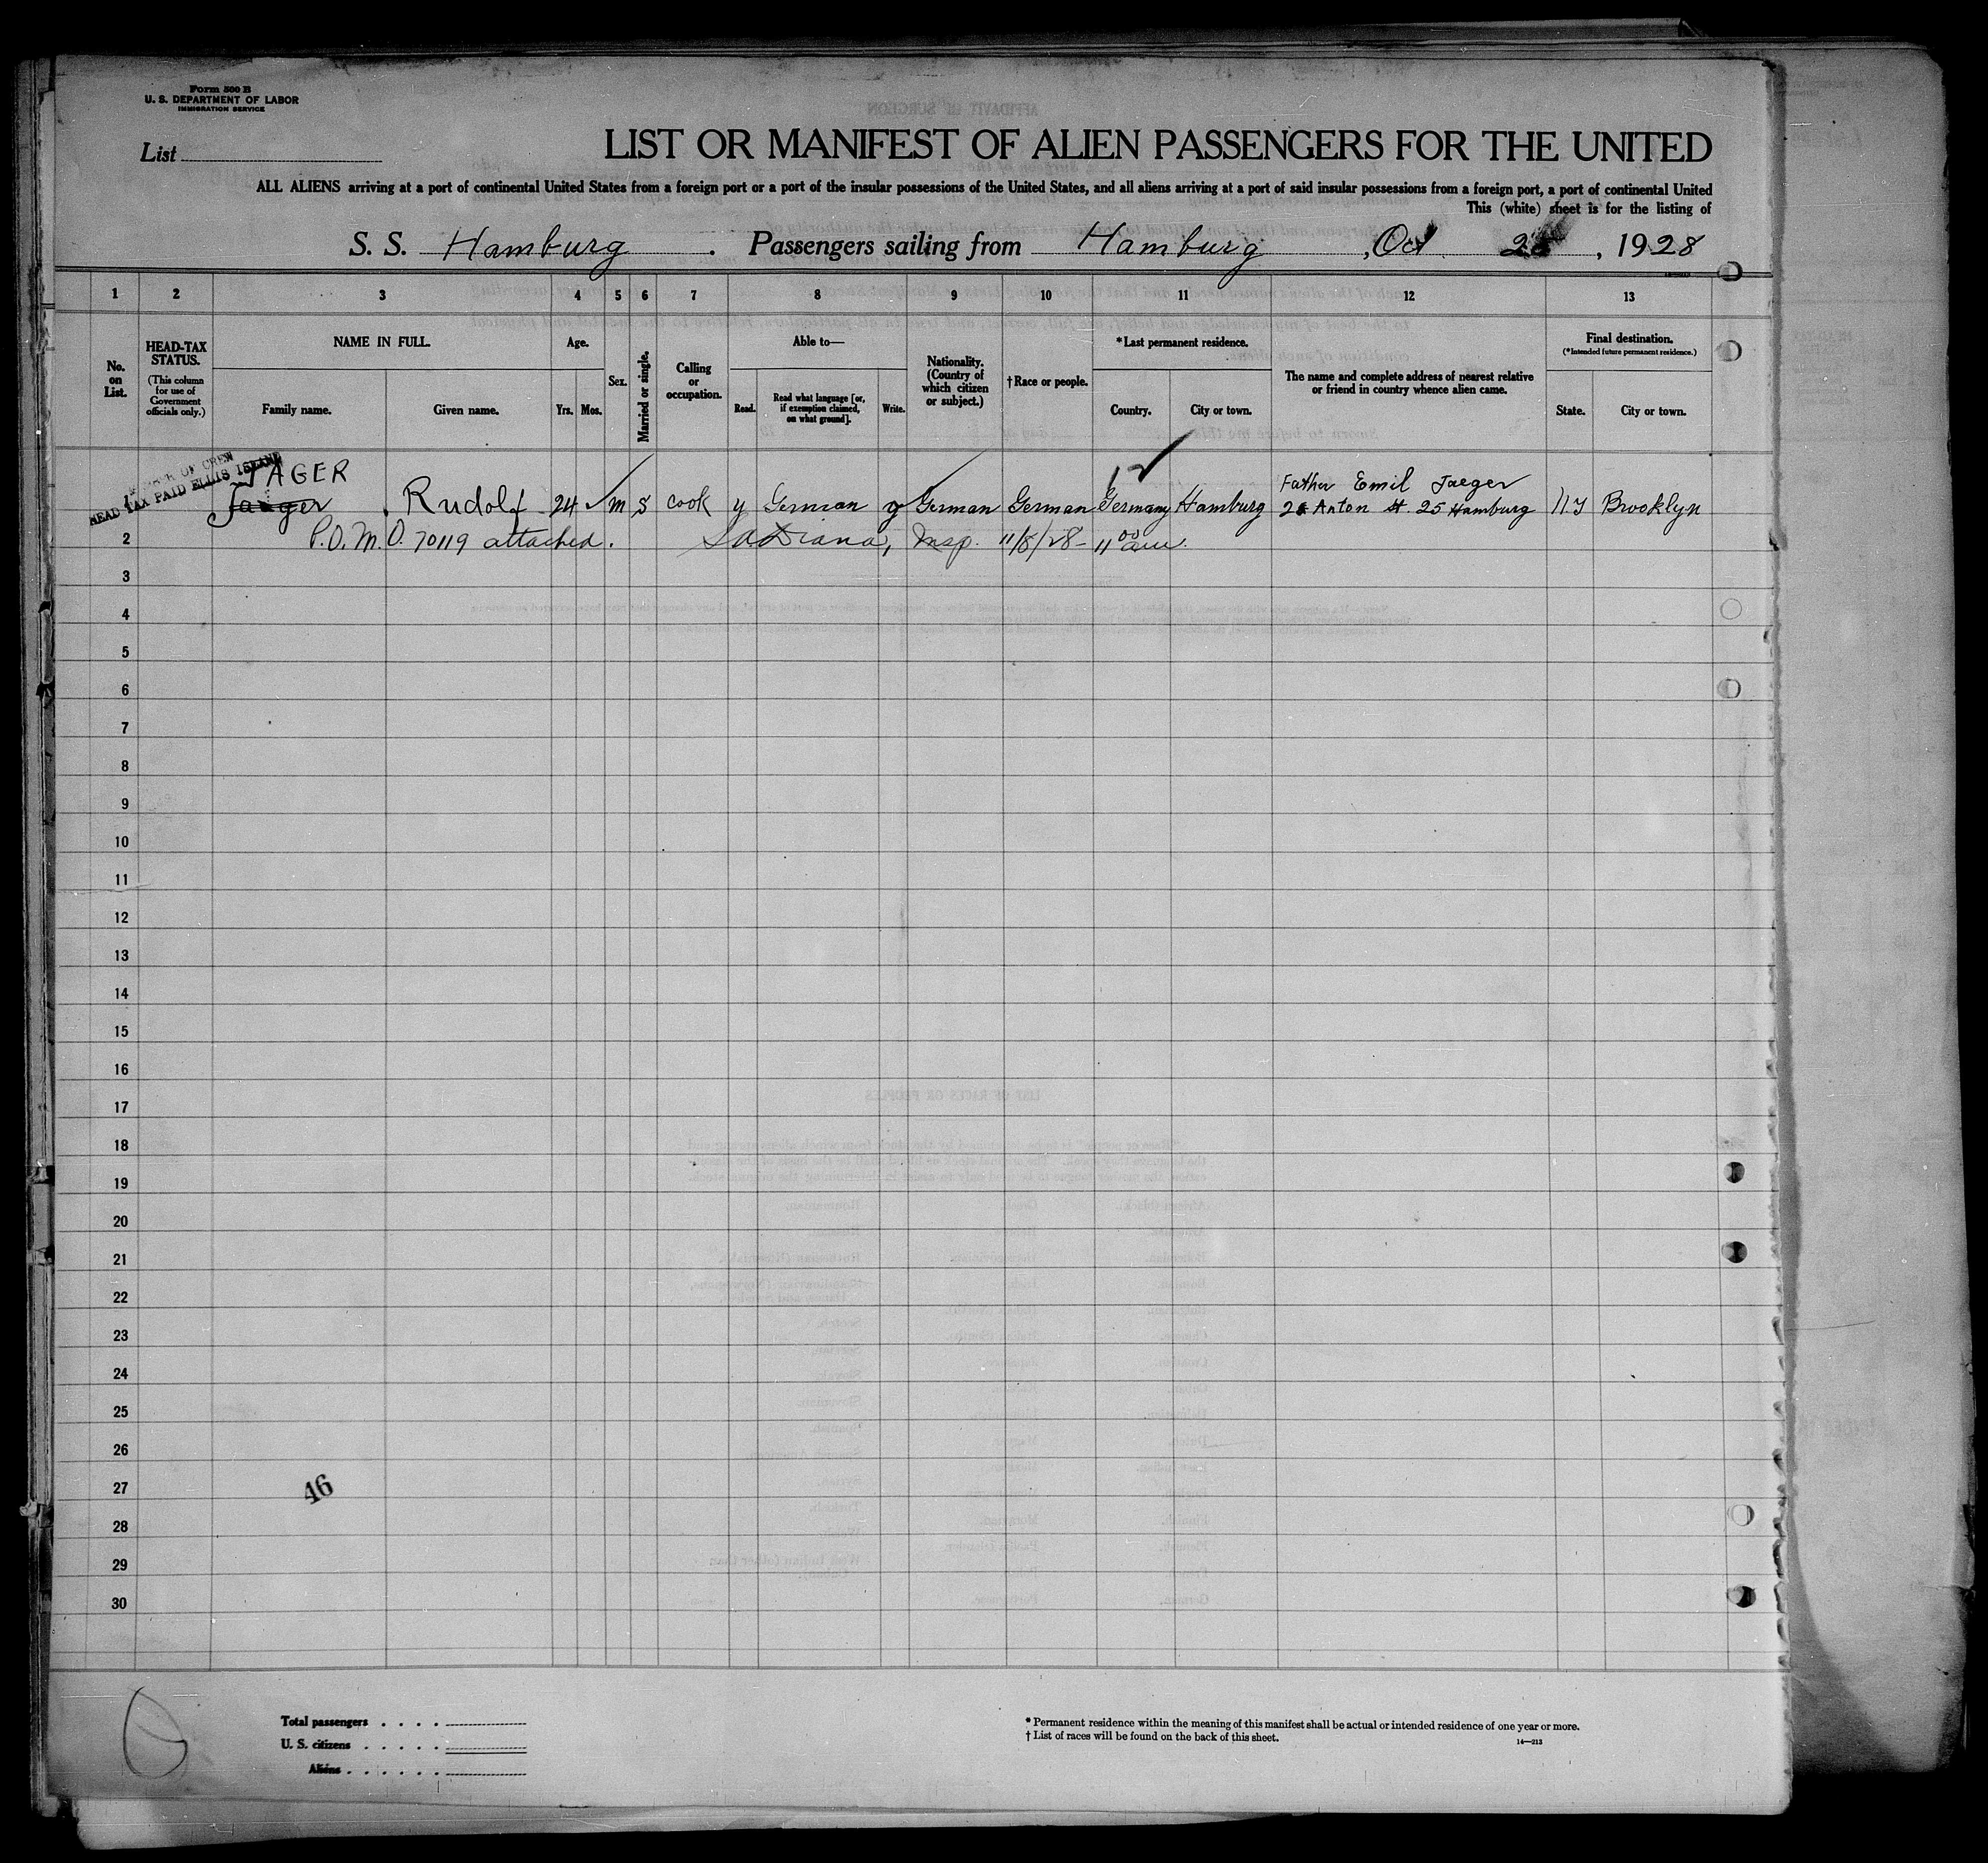 Form 500 B
U. S. DEPARTMENT OF LABOR
IMMIGRATION SERVICE
List
LIST OR MANIFEST OF ALIEN PASSENGERS FOR THE UNITED
ALL ALIENS arriving at a port of continental United States from a foreign port or a port of the insular possessions of the United States, and all aliens arriving at a port of said insular possessions from a foreign port, a port of continental United
This (white) sheet is for the listing of
S. S. Hamburg . Passengers sailing from Hamburg , Oct , 1928
1 2 3 4 5 6 7 8 9 10 11 12 13
No. on List.
HEAD-TAX STATUS.
(This column for use of Government officials only.)
NAME IN FULL.
Family name.
Given name.
Age.
Yrs. Mos.
Sex.
Married or single.
Calling or occupation.
Able to—
Read.
Read what language [or, if exemption claimed, on what ground].
Write.
Nationality. (Country of which citizen or subject.)
† Race or people.
* Last permanent residence.
Country.
City or town.
The name and complete address of nearest relative or friend in country whence alien came.
Final destination.
(* Intended future permanent residence.)
State.
City or town.
HEAD TAX PAID ELLIS ISLAND
JAGER
Father Emil Jaeger
Jaeger Rudolf 24 m s cook y German y German German Germany Hamburg Anton St. 25 Hamburg N.Y Brooklyn
2 P.O.M.O. 70119 attached. Insp. 11/8/28 - 11 00 am.
3
4
5
6
7
8
9
10
11
12
13
14
15
16
17
18
19
20
21
22
23
24
25
26
27
46
28
29
30
Total passengers
U. S. citizens
Aliens
* Permanent residence within the meaning of this manifest shall be actual or intended residence of one year or more.
† List of races will be found on the back of this sheet.
14—213